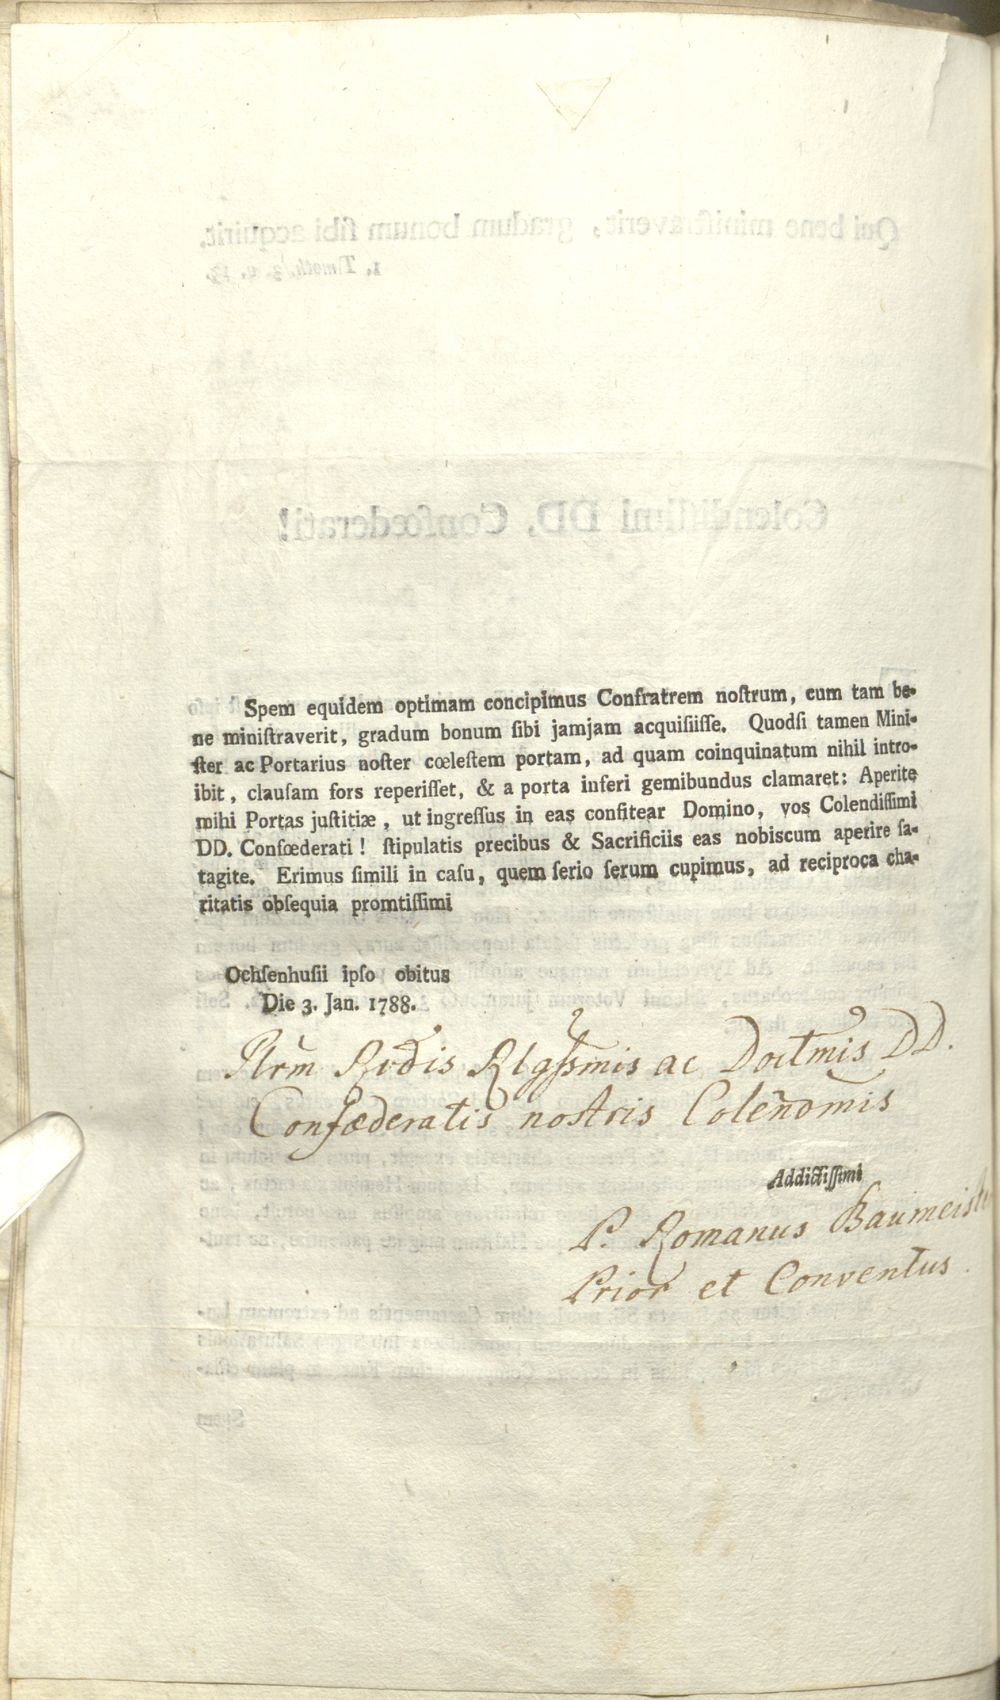 Spem equidem optimam concipimus Confratrem noſtrum, cum tam be-
ne miniſtraverit, gradum bonum ſibi jamjam acquiſiiſſe. Quodſi tamen Mini-
ſter ac Portarius noſter cœleſtem portam, ad quam coinquinatum nihil intro-
ibit, clauſam fors reperiſſet, & a porta inferi gemibundus clamaret: Aperite
mihi Portas juſtitiæ, ut ingreſſus in eas confitear Domino, vos Colendiſſimi
DD. Confœderati! ſtipulatis precibus & Sacrificiis eas nobiscum aperire ſa-
tagite. Erimus ſimili in caſu, quem ſerio ſerum cupimus, ad reciproca cha-
ritatis obſequia promtiſſimi
Ochſenhuſii ipſo obitus
Die 3. Jan. 1788.
Rlgſsmis ac Doctmis DD.
Confœderatis nostris Colendmis
Addictiſſimi
P. Romanus Baumeister
Prior et Conventus.